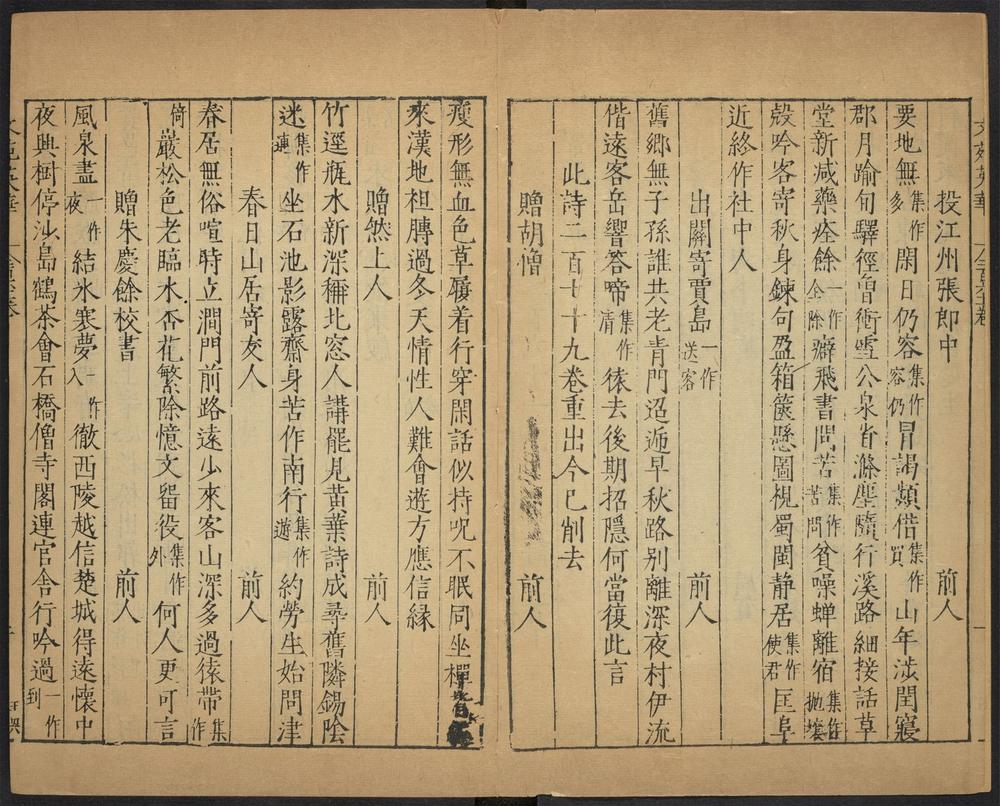 投江州張郎中 前人
要地無集作多閑日仍容集作容仍冒謁頻偕集作買山年涉閏寢
郡月踰旬驛徑曾衝雪公泉省滌塵隨行溪路細接話草
堂新減藥痊餘一作全除癖飛書問苦集作苦問貧噪蝉離宿集作拋壞
殼吟客寄秋身鍊句盈箱篋懸圖視蜀閩静居集作使君匡阜
近終作社中人
出關寄賈島一作送客 前人
舊鄉無子孫誰共老青門迢遞早秋路别離深夜村伊流
偕遠客岳響答啼集作清猿去後期招隱何當復此言
此詩二百七十九卷重出今已削去
贈胡僧 前人
瘦形無血色草屨着行穿閑話似持呪不眠同坐禪背經
來漢地袒膊過冬天情性人難會遊方應信緣
贈然上人 前人
竹逕瓶水新深稱北窓人講罷見黃葉詩成尋舊隣錫陰
迷集作連坐石池影露齋身苦作南行集作遊約勞生始問津
春日山居寄友人 前人
春居無俗喧時立澗門前路遠少來客山深多過猿帶集作
倚巖松色老臨水杏花繁除憶文畱役集作外何人更可言
贈朱慶餘校書 前人
風泉盡一作夜結氷寒夢一作入徹西陵越信楚城得遠懷中
夜興樹停沙島鶴茶會石橋僧寺閣連官舍行吟過一作到